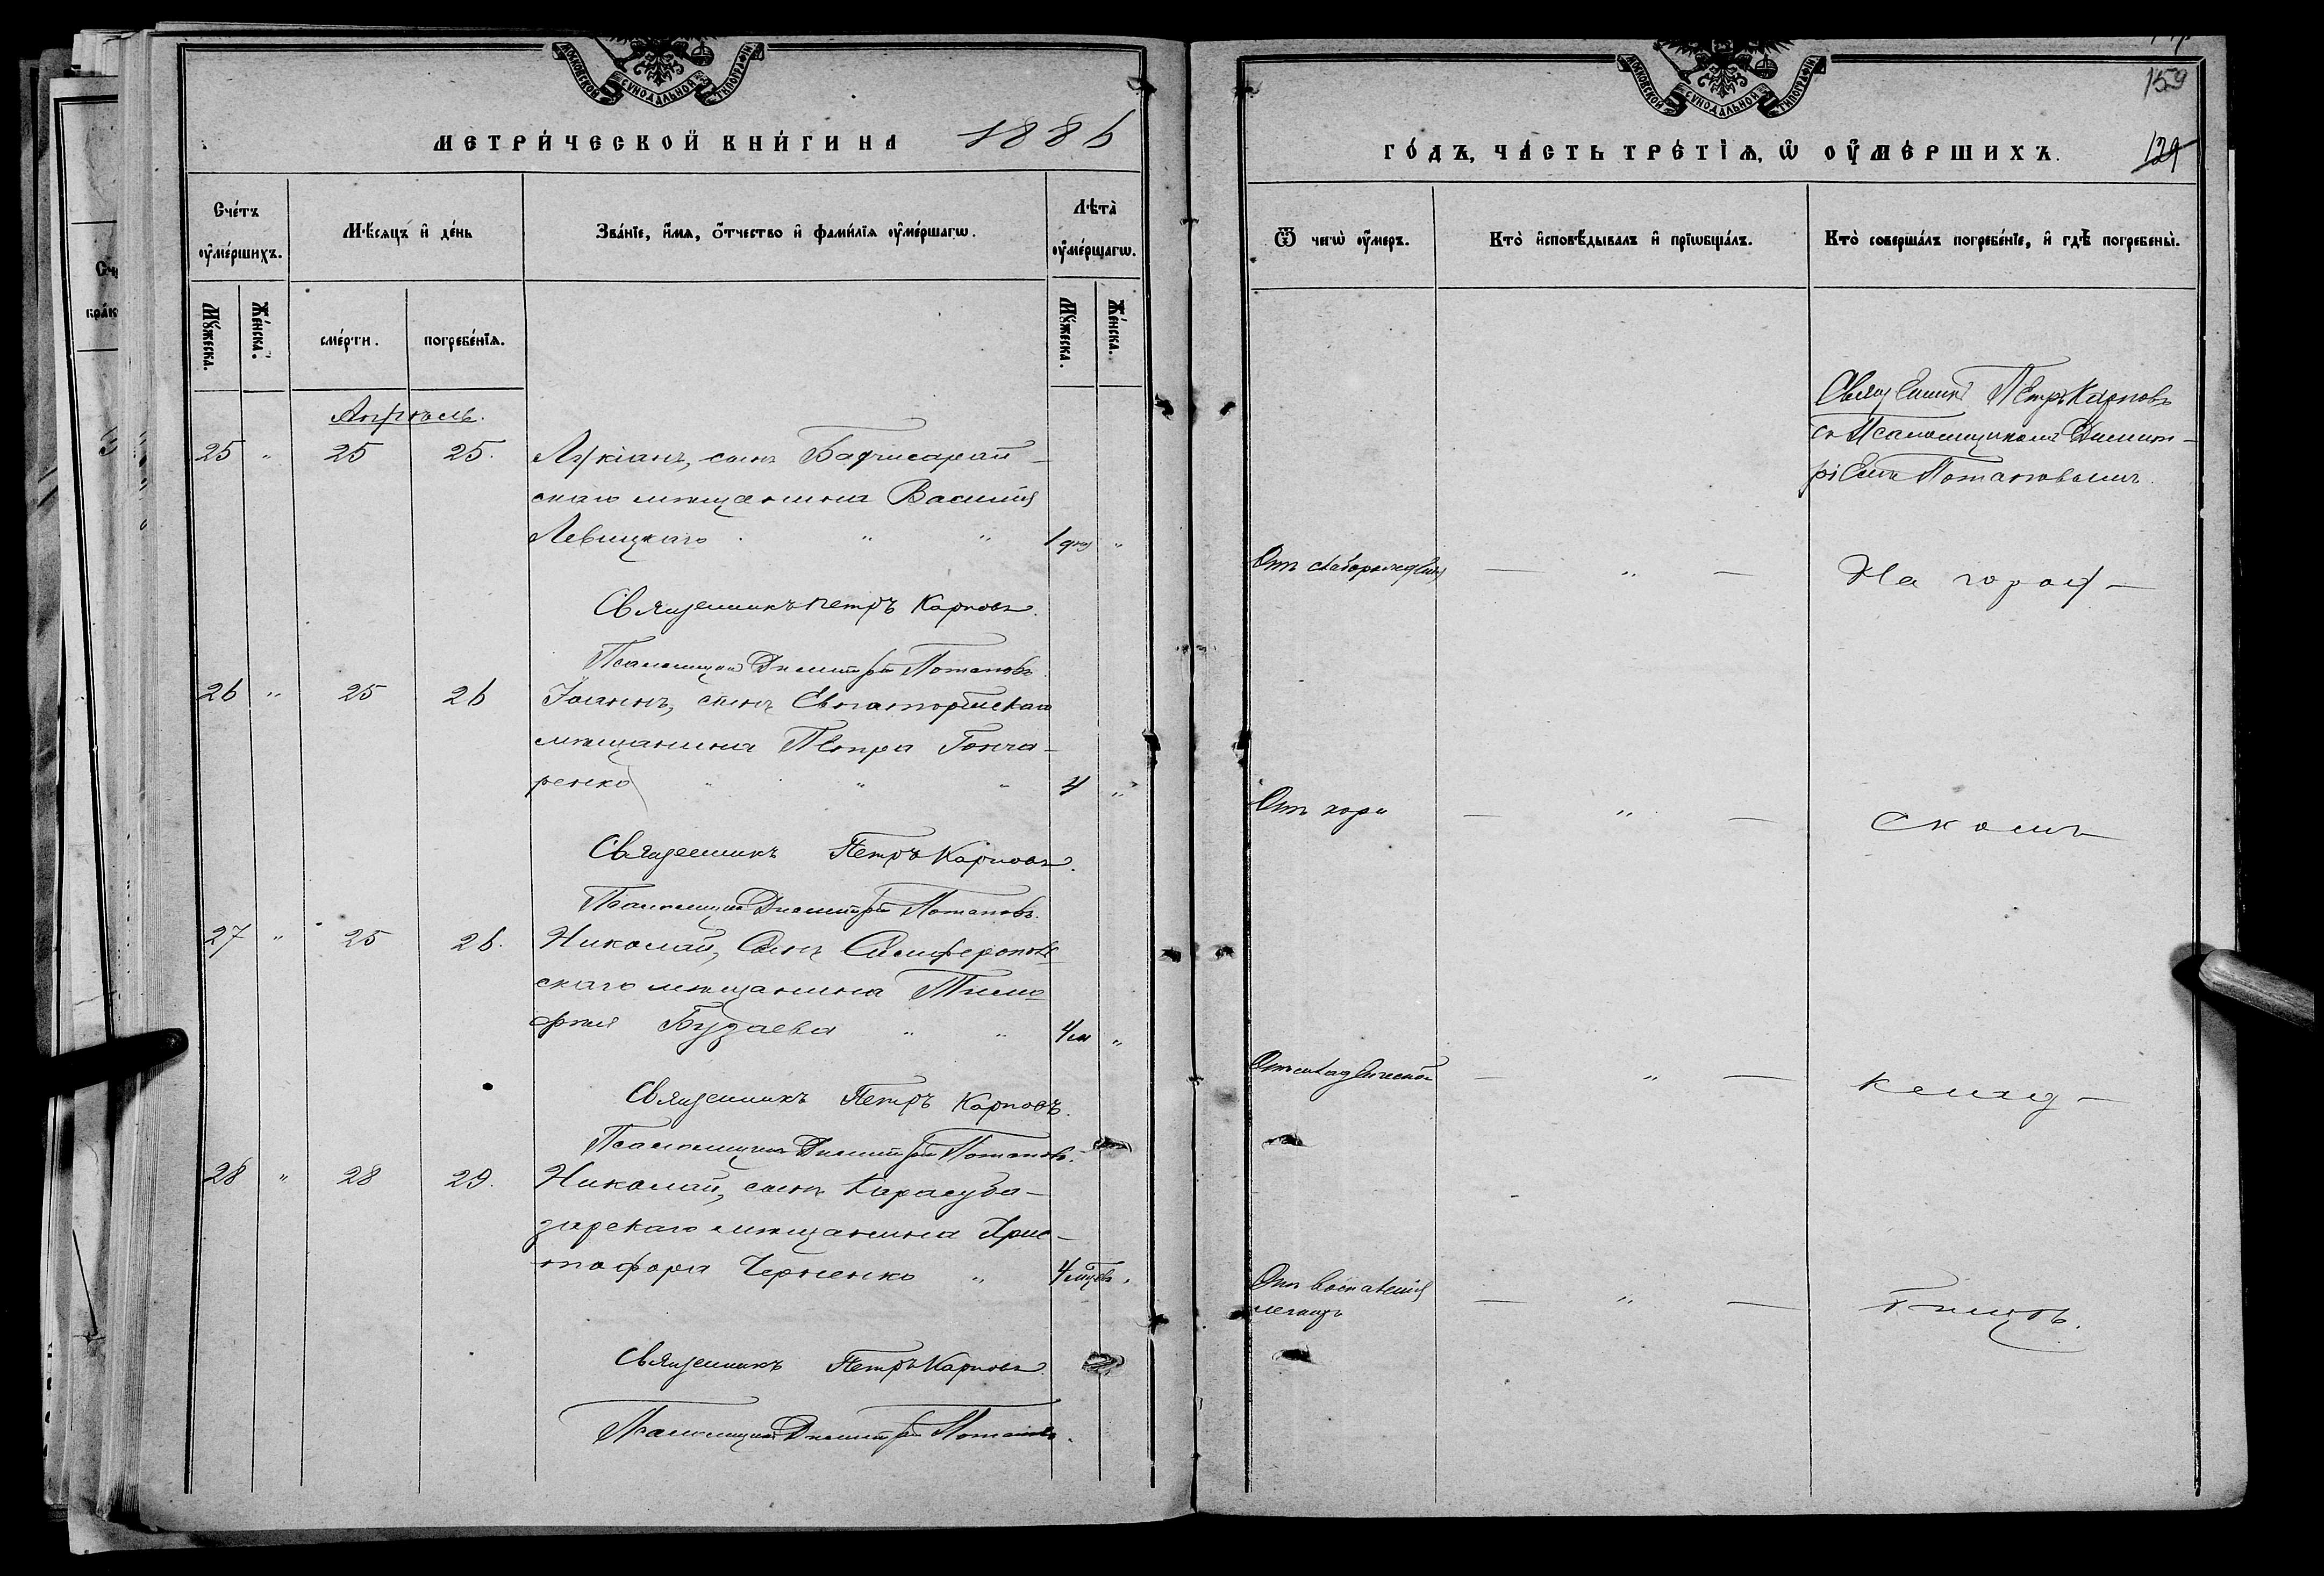 МОСКОВСКОЙ СѴНОДАЛЬНОЙ ТИПОГРАФІИ
МЕТРИ́ЧЕСКОЙ КНИ́ГИ НА 1886
Сче́тъ ᲂу҆ме́ршихъ.
Мѣ́сяцъ и҆ де́нь
Зва́нїе, и҆́мѧ, ѻ҆́тчество и҆ фами́лїѧ ᲂу҆ме́ршагѡ.
Лѣта̀ ᲂу҆ме́ршагѡ.
Мꙋ́жеска.
Же́нска.
сме́рти.
погребе́нїѧ.
Мꙋ́жеска.
Же́нска.
Апрѣль.
25 " 25 25. Лукіанъ, сынъ Бахчисарай-
скаго мѣщанина Василія
Левицкаго " " 1 дня "
Священникъ Петръ Карповъ.
Псаломщикъ Димитрій Потаповъ.
26 " 25 26 Іоаннъ, сынъ Евпаторійскаго
мѣщанина Петра Гонча-
ренко " " " 4 "
Священникъ Петръ Карповъ.
Псаломщикъ Димитрій Потаповъ.
27 " 25 26. Николай, сынъ Симферополь-
скаго мѣщанина Тимо-
фея Бузаева " " 4 м "
Священникъ Петръ Карповъ.
Псаломщикъ Димитрій Потаповъ.
28 " 28 29. Николай, сынъ Карасуба-
зарскаго мѣщанина Хрис-
тофора Черненко " 4 мцев "
Священникъ Петръ Карповъ.
Псаломщикъ Димитрій Потаповъ.
МОСКОВСКОЙ СѴНОДАЛЬНОЙ ТИПОГРАФІИ
159
ГО́ДЪ, ЧА́СТЬ ТРЕ́ТЇѦ, Ѡ҆ ОУ҆МЕ́РШИХЪ.
129
Ѿ чегѡ̀ ᲂу҆́меръ.
Кто̀ и҆сповѣ́дывалъ и҆ прїѡбща́лъ.
Кто̀ соверша́лъ погребе́нїе, и҆ гдѣ̀ погребены̀.
Священникъ Петръ Карповъ
съ Псаломщикомъ Димит-
ріемъ Потаповымъ.
Отъ слаборожденія — " — На город-
Отъ кори — " — скомъ
Отъ младенческой — " — клад-
Отъ воспаленія
легкихъ — " — бищѣ.